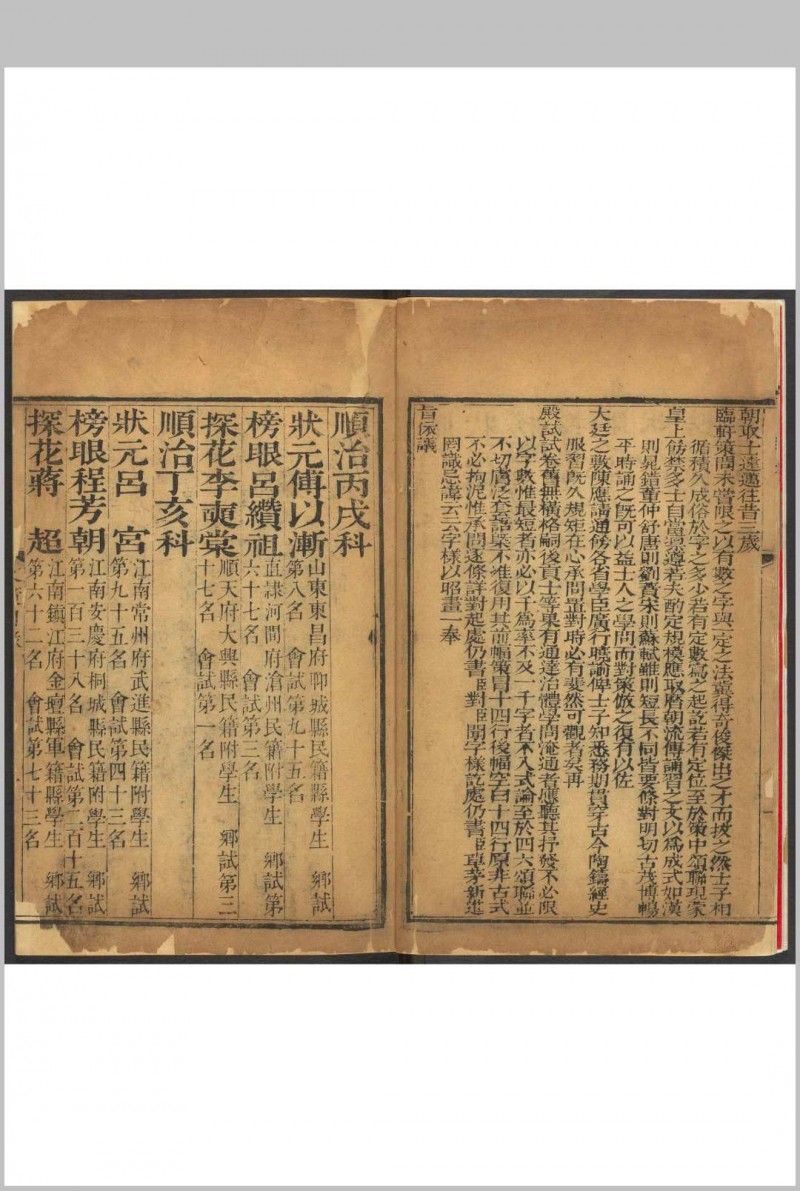 朝取士遠邁往昔三歲
臨軒策問未嘗限之以有數之字與一定之法冀得奇俊傑出之才而拔之然士子相
循積久成俗於字之多少若有定數寫之起訖若有定位至於策中頌聯現蒙
皇上飭禁多士自當凜遵若夫酌定規模應取曆朝流傳誦習之文以為成式如漢
則晁錯董仲舒唐則劉蕡宋則蘇軾雖則短長不同皆要條對明切古茂博暢
平時誦之既可以益士人之學問而對策倣之復有以佐
大廷之敷陳應請通飭各省學臣廣行曉諭俾士子知悉務期貫穿古今陶鑄經史
服習既久規矩在心承問置對時必有斐然可觀者矣再
殿試試卷舊無橫格嗣後貢士等果有通達治體學問淹通者應聽其抒發不必限
以字數惟最短者亦必以千為率不及一千字者不入式論至於四六頌聯並
不切膚泛套語槩不准復用其前幅策冒十四行後幅空白十四行原非古式
不必拘泥惟承問逐條詳對起處仍書臣對臣聞字樣訖處仍書臣草茅新進
罔識忌諱云云字樣以昭畫一奉
旨依議
順治丙戌科
狀元傅以漸 山東東昌府聊城縣民籍縣學生 鄉試第八名 會試第九十五名
榜眼呂纘祖 直隸河間府滄州民籍附學生 鄉試第六十七名 會試第三名
探花李奭棠 順天府大興縣民籍附學生 鄉試第三十七名 會試第一名
順治丁亥科
狀元呂 宮 江南常州府武進縣民籍附學生 鄉試第九十五名 會試第四十三名
榜眼程芳朝 江南安慶府桐城縣民籍附學生 鄉試第一百三十八名 會試第二百十五名
探花蔣 超 江南鎮江府金壇縣軍籍縣學生 鄉試第六十二名 會試第七十三名